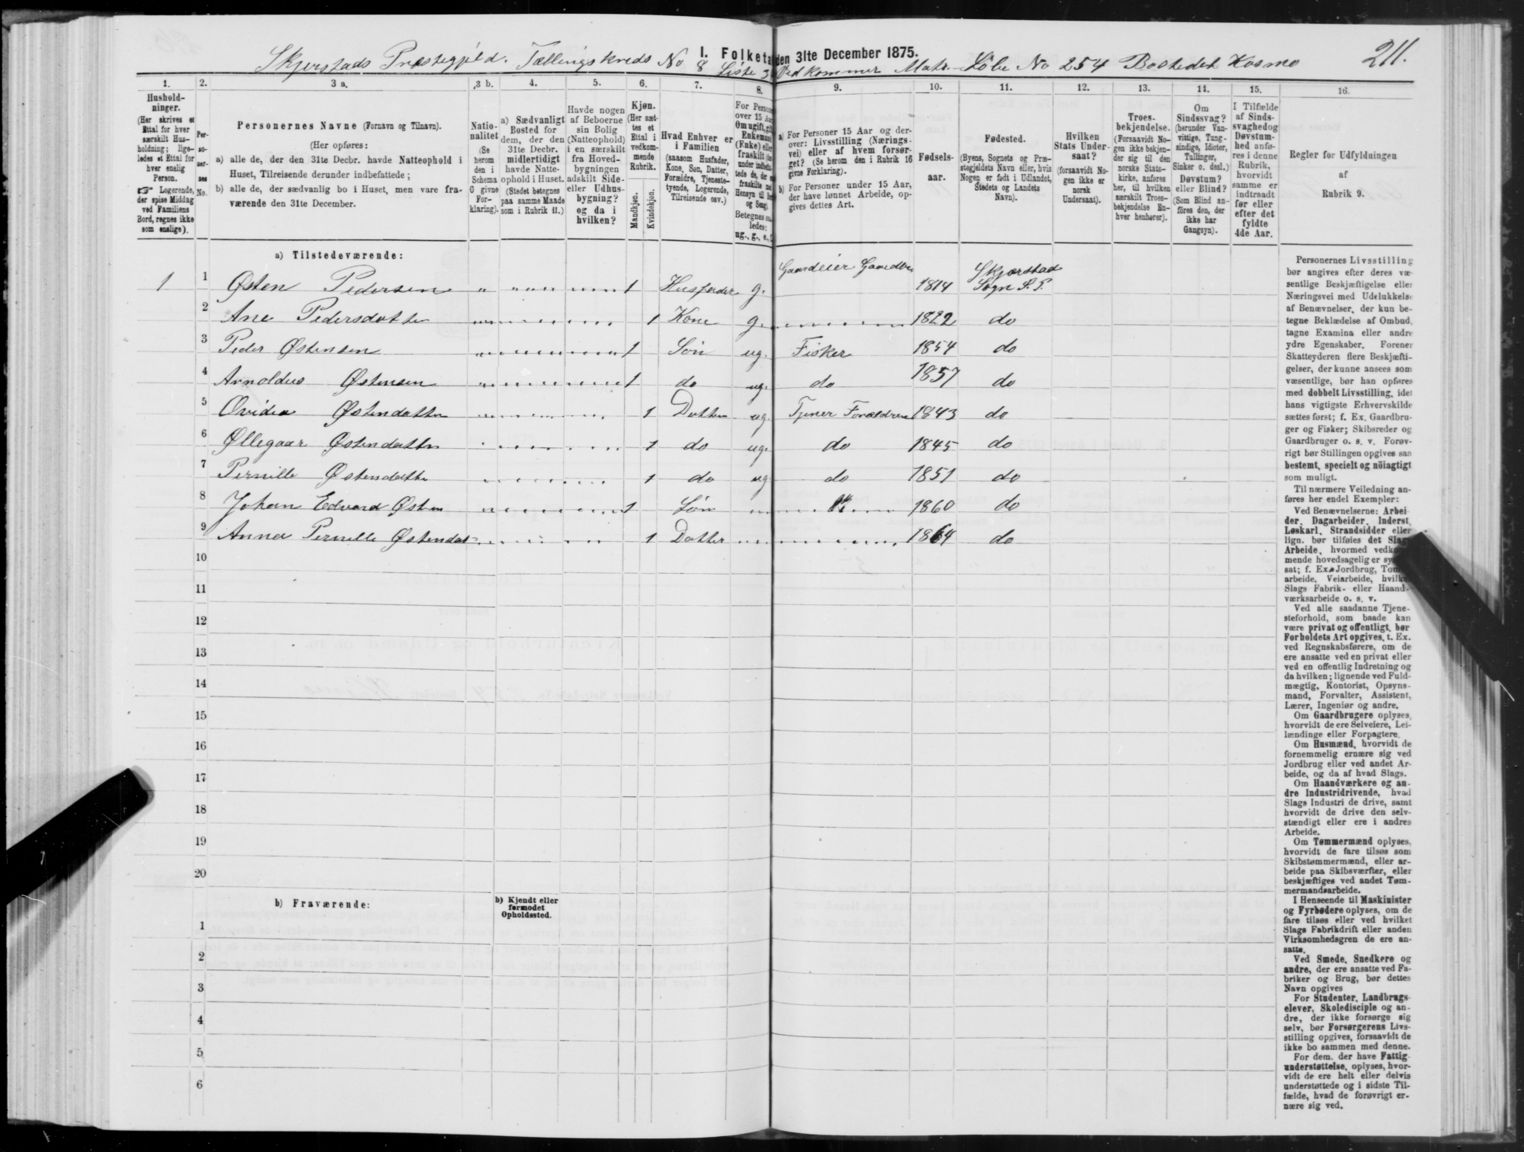 I. Folketa den 31te December 1875.
211.
Skjerstads Præstegjeld. Tællingskreds No 8 Liste 3 Vedkommer Matr. Løbe No 254 Bostedet Kosmo
1.
Hushold-
ninger.
(Her skrives et
Ettal for hver
særskilt Hus-
holdning; lige-
ledes et Ettal for
hver enslig
Person.
☞ Logerende,
der spise Middag
ved Familiens
Bord, regnes ikke
som enslige).
2.
Per-
so-
ner-
nes
No.
3 a.
Personernes Navne (Fornavn og Tilnavn).
(Her opføres:
a) alle de, der den 31te Decbr. havde Natteophold i
Huset, Tilreisende derunder indbefattede;
b) alle de, der sædvanlig bo i Huset, men vare fra-
værende den 31te December.
3 b.
Natio-
nalitet
(Se
herom
den i
Schema
6 givne
For-
klaring).
4.
a) Sædvanligt
Bosted for
dem, der den
31te Decbr. i
midlertidigt
havde Natte-
ophold i Huset.
(Stedet betegnes
paa samme Maade
som i Rubrik 11.)
5.
Havde nogen
af Beboerne
sin Bolig
(Natteophold)
i en særskilt
fra Hoved-
bygningen
adskilt Side-
eller Udhus-
bygning?
og da i
hvilken?
6.
Kjøn.
(Her sæt-
tes et
Ettal i
vedkom-
mende
Rubrik.
Mandkjøn.
Kvindekjøn.
7.
Hvad Enhver er
i Familien
(saasom Husfader,
Kone, Søn, Datter,
Forældre, Tjeneste-
tyende, Logerende,
Tilreisende osv.)
8.
For Person
over 15 Aar
Om ugift, gift
Enkemand
(Enke) eller
fraskilt
Betegnes saa-
ledes:
ug., g., e.,
9.
a) For Personer 15 Aar og der-
over: Livsstilling (Nærings-
vei) eller af hvem forsør-
get? (Se herom den i Rubrik 16
givne Forklaring).
b) For Personer under 15 Aar,
der have lønnet Arbeide, op-
gives dettes Art.
10.
Fødsels-
aar.
11.
Fødested.
(Byens, Sognets og Præ-
stegjeldets Navn eller, hvis
Nogen er født i Udlandet,
Stedets og Landets
Navn).
12.
Hvilken
Stats Under-
saat?
(forsaavidt No-
gen ikke er
norsk
Undersaat).
13.
Troes-
bekjendelse.
(Forsaavidt No-
gen ikke bekjen-
der sig til den
norske Stats-
kirke, anføres
her, til hvilken
særskilt Troes-
bekjendelse En-
hver henhører).
14.
Om
Sindssvag?
(herunder Van-
vittige, Tung-
sindige, Idioter,
Tullinger,
Sinker o. desl.)
Døvstum?
eller Blind?
(Som Blind an-
føres den, der
ikke har
Gangsyn).
15.
I Tilfælde
af Sinds-
svaghed og
Døvstum-
hed anfø-
res i denne
Rubrik,
hvorvidt
samme er
indtraadt
før eller
efter det
fyldte
4de Aar.
16.
Regler for Udfyldningen
af
Rubrik 9.
a) Tilstedeværende:
1 1 Østen Pedersen 1 Husfader g. Gaardeier Gaardbr 1814 Skjerstad Sogn S. P.
2 Ane Pedersdatter 1 Kone g. 1822 do
3 Peder Østensen 1 Søn ug. Fisker 1854 do
4 Arnoldus Østensen 1 do ug. do 1857 do
5 Ovidia Østendatter 1 Datter ug. Tjener Forældrene 1843 do
6 Øllegaar Østendatter 1 do ug. do 1845 do
7 Pernille Østendatter 1 do ug do 1851 do
8 Johan Edvard Østen 1 Søn 1860 do
9 Anna Pernille Østendat 1 Datter 1864 do
10
11
12
13
14
15
16
17
18
19
20
b) Fraværende:
b) Kjendt eller
formodet
Opholdssted.
1
2
3
4
5
6
Personernes Livsstilling
bør angives efter deres væ-
sentlige Beskjæftigelse eller
Næringsvei med Udelukkelse
af Benævnelser, der kun be-
tegne Beklædelse af Ombud,
tagne Examina eller andre
ydre Egenskaber. Forener
Skatteyderen flere Beskjæfti-
gelser, der kunne ansees som
væsentlige, bør han opføres
med dobbelt Livsstilling, idet
hans vigtigste Erhvervskilde
sættes først; f. Ex. Gaardbru-
ger og Fisker; Skibsreder og
Gaardbruger o. s. v. Forøv-
rigt bør Stillingen opgives saa
bestemt, specielt og nöiagtigt
som muligt.
Til nærmere Veiledning an-
føres her endel Exempler:
Ved Benævnelserne: Arbei-
der, Dagarbeider, Inderst,
Løskarl, Strandsidder eller
lign. bør tilføies det Slags
Arbeide, hvormed vedkom-
mende hovedsagelig er sy
sat; f. Ex. Jordbrug, Tom
arbeide, Veiarbeide, hvilk
Slags Fabrik- eller Haand-
værksarbeide o. s. v.
Ved alle saadanne Tjene-
steforhold, som baade kan
være privat og offentligt, bør
Forholdets Art opgives, t. Ex.
ved Regnskabsførere, om de
ere ansatte ved en privat eller
ved en offentlig Indretning og
da hvilken; lignende ved Fuld-
mægtig, Kontorist, Opsyns-
mand, Forvalter, Assistent,
Lærer, Ingeniør og andre.
Om Gaardbrugere oplyses,
hvorvidt de ere Selveiere, Lei-
lændinge eller Forpagtere.
Om Husmænd, hvorvidt de
fornemmelig ernære sig ved
Jordbrug eller ved andet Ar-
beide, og da af hvad Slags.
Om Haandværkere og an-
dre Industridrivende, hvad
Slags Industri de drive, samt
hvorvidt de drive den selv-
stændigt eller ere i andres
Arbeide.
Om Tømmermænd oplyses,
hvorvidt de fare tilsøs som
Skibstømmermænd, eller ar-
beide paa Skibsværfter, eller
beskjæftiges ved andet Tøm-
mermandsarbeide.
I Henseende til Maskinister
og Fyrbødere oplyses, om de
fare tilsøs eller ved hvilket
Slags Fabrikdrift eller anden
Virksomhedsgren de ere an-
satte.
Ved Smede, Snedkere og
andre, der ere ansatte ved Fa-
briker og Brug, bør dettes
Navn opgives
For Studenter, Landbrugs-
elever, Skoledisciple og an-
dre, der ikke forsørge sig
selv, bør Forsørgerens Livs-
stilling opgives, forsaavidt de
ikke bo sammen med denne.
For dem, der have Fattig-
understøttelse, oplyses, hvor-
vidt de ere helt eller delvis
understøttede og i sidste Til-
fælde, hvad de forøvrigt er-
nære sig ved.